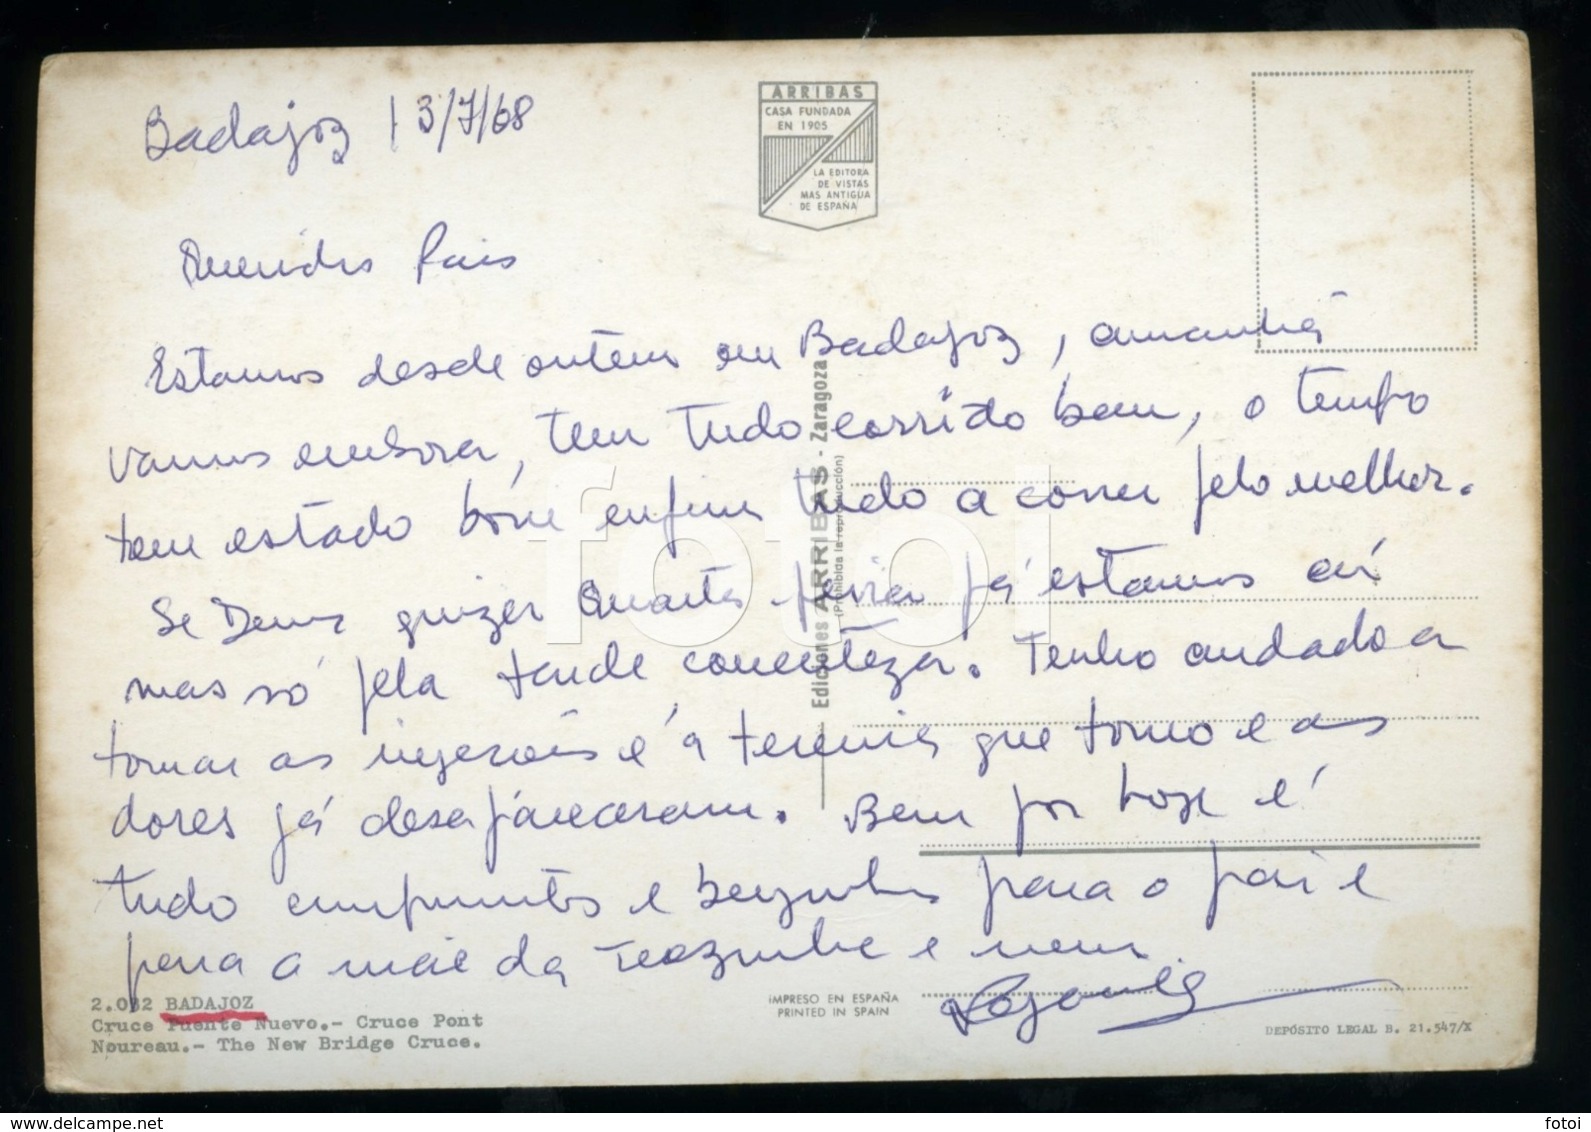 Badajoz 13/7/68
ARRIBAS
CASA FUNDADA
EN 1905
LA EDITORA
DE VISTAS
MAS ANTIGUA
DE ESPAÑA
Queridos Pais
Estamos desde ontem em Badajoz, amanhã
vamos embora, tem tudo corrido bem, o tempo
tem estado bom enfim tudo a correr pelo melhor.
Se Deus quizer Quarta feira já estamos aí
mas só pela tarde concerteza. Tenho andado a
tomar as injecções é a terceira que tomo e as
dores já desapareceram. Bem por hoje é
tudo cumprimentos e beijinhos para o pai e
para a mãe da Terezinha e meus
Ediciones ARRIBAS - Zaragoza
(Prohibida la reproducción)
fotoi
2.032 BADAJOZ
Cruce Puente Nuevo.- Cruce Pont
Noureau.- The New Bridge Cruce.
IMPRESO EN ESPAÑA
PRINTED IN SPAIN
DEPÓSITO LEGAL B. 21.547/X
www.delcampe.net
fotoi